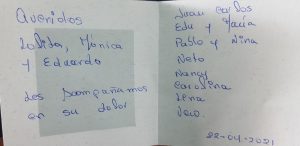 Queridos
Lolita, Mónica
y Eduardo
Les Acompañamos
en su dolor
Juan Carlos
Edu y María
Pablo y Nina
Neto
Nancy
Carolina
Lena
Vero.
22-04-2021